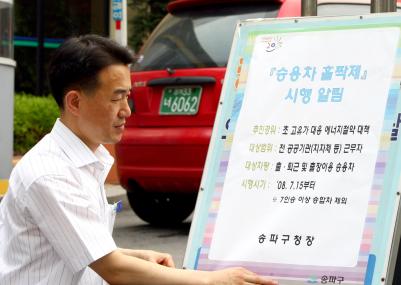 『승용차 홀짝제』
시행 알림
추진경위 : 초 고유가 대응 에너지절약 대책
대상범위 : 전 공공기관(지자체 등) 근무자
대상차량 : 출·퇴근 및 출장이용 승용차
시행시기 : '08. 7.15부터
※ 7인승 이상 승합차 제외
송파구청장
송파구
6062